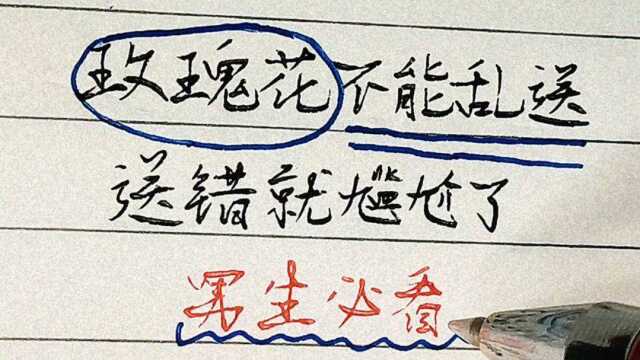 玫瑰花不能乱送
送错就尴尬了
男生必看